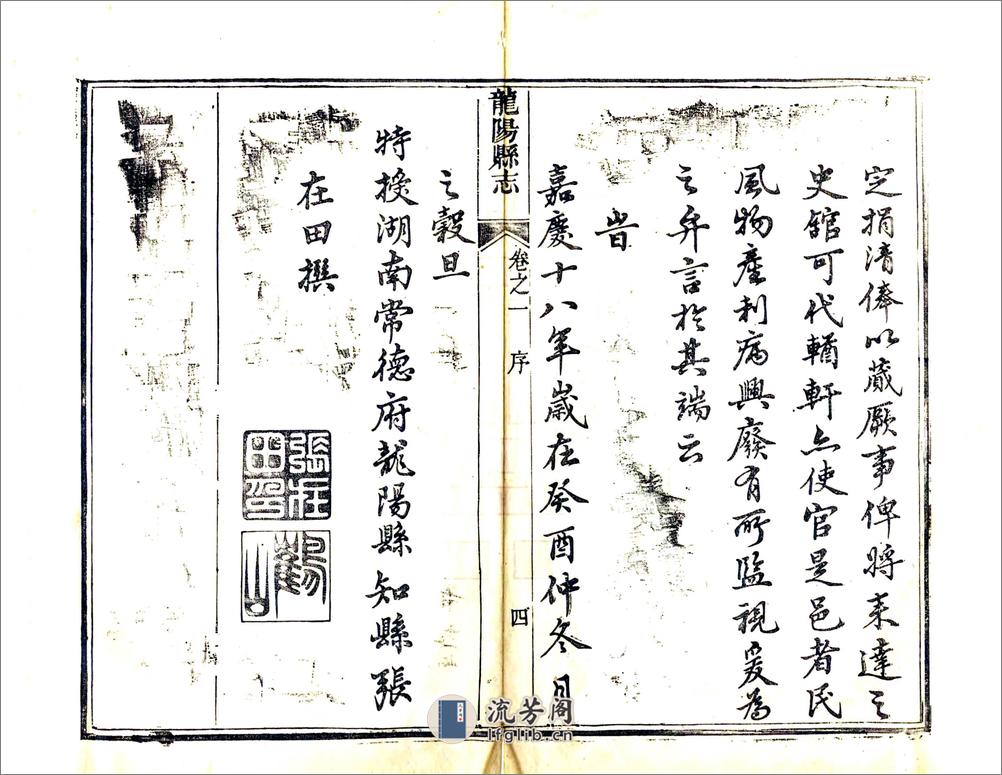 定捐清俸以蕆厥事俾將來達之
史館可代輶軒亦使官是邑者民
風物產利病興廢有所監視爰為
之弁言於其端云
旹
嘉慶十八年歲在癸酉仲冬月
龍陽縣志
卷之一 序
四
之穀旦
特授湖南常德府龍陽縣知縣張
在田撰
張在田印
鶴山
流芳阁
lfglib.cn